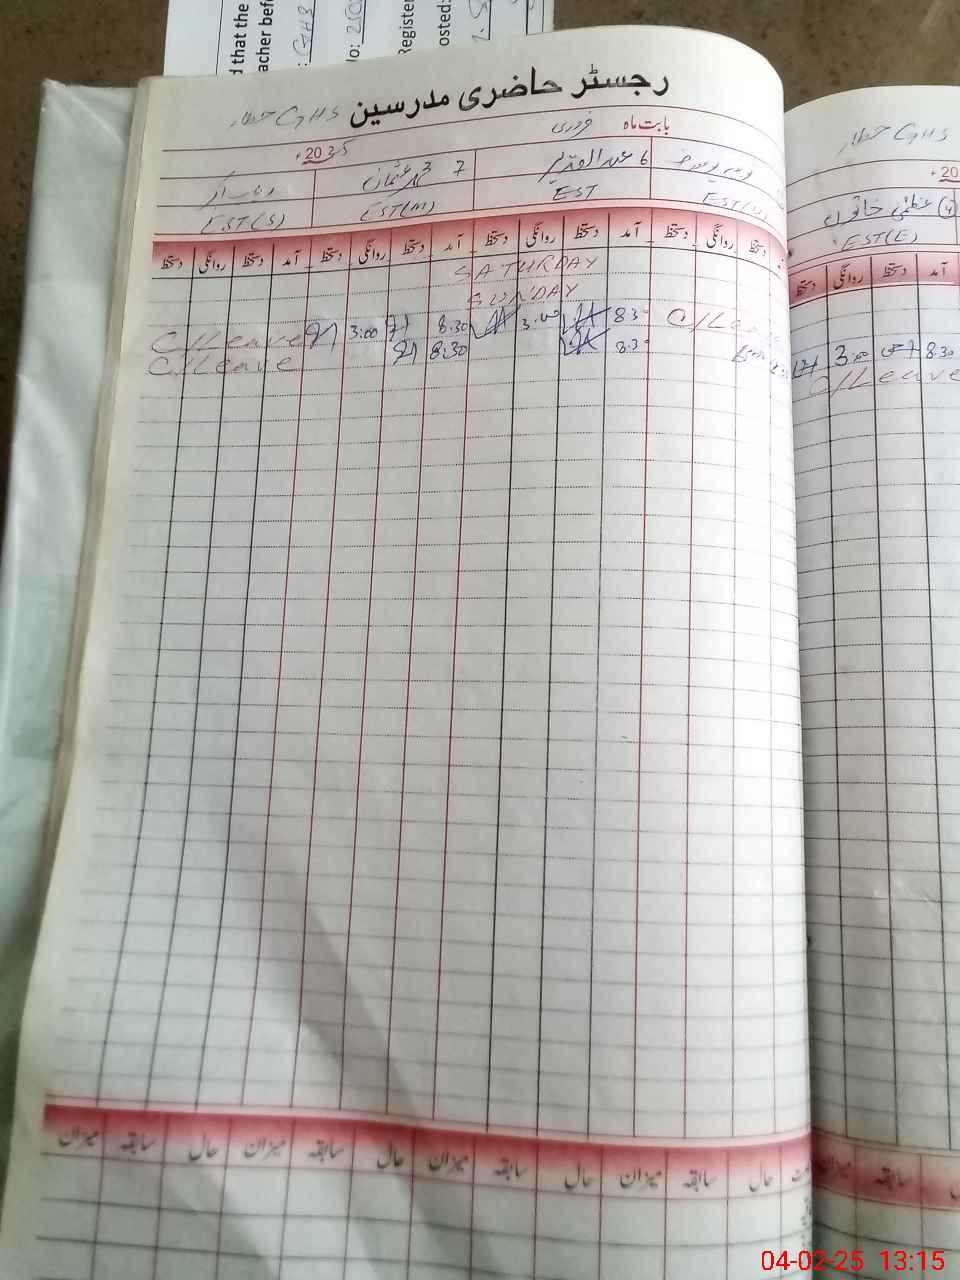 d that the
acher bef
: GHS
Register
osted:
رجسٹر حاضری مدرسین
GHS
بابت ماہ فروری
2025ء
6 عبدالقدیر
7 محمد عثمان
EST
EST(M)
EST(S)
آمد دستخط روانگی دستخط آمد دستخط روانگی دستخط آمد دستخط روانگی دستخط
SATURDAY
SUNDAY
C/Leave 8.30 3.00 8.30 3.00 C/Leave
8.30 8.30 C/Leave
حال سابقہ میزان حال سابقہ میزان حال سابقہ میزان حال سابقہ میزان
GHS
20
عظمیٰ خاتون
EST(E)
آمد دستخط روانگی دستخط
8.30 3.00
C/Leave
سابقہ میزان
04-02-25 13:15